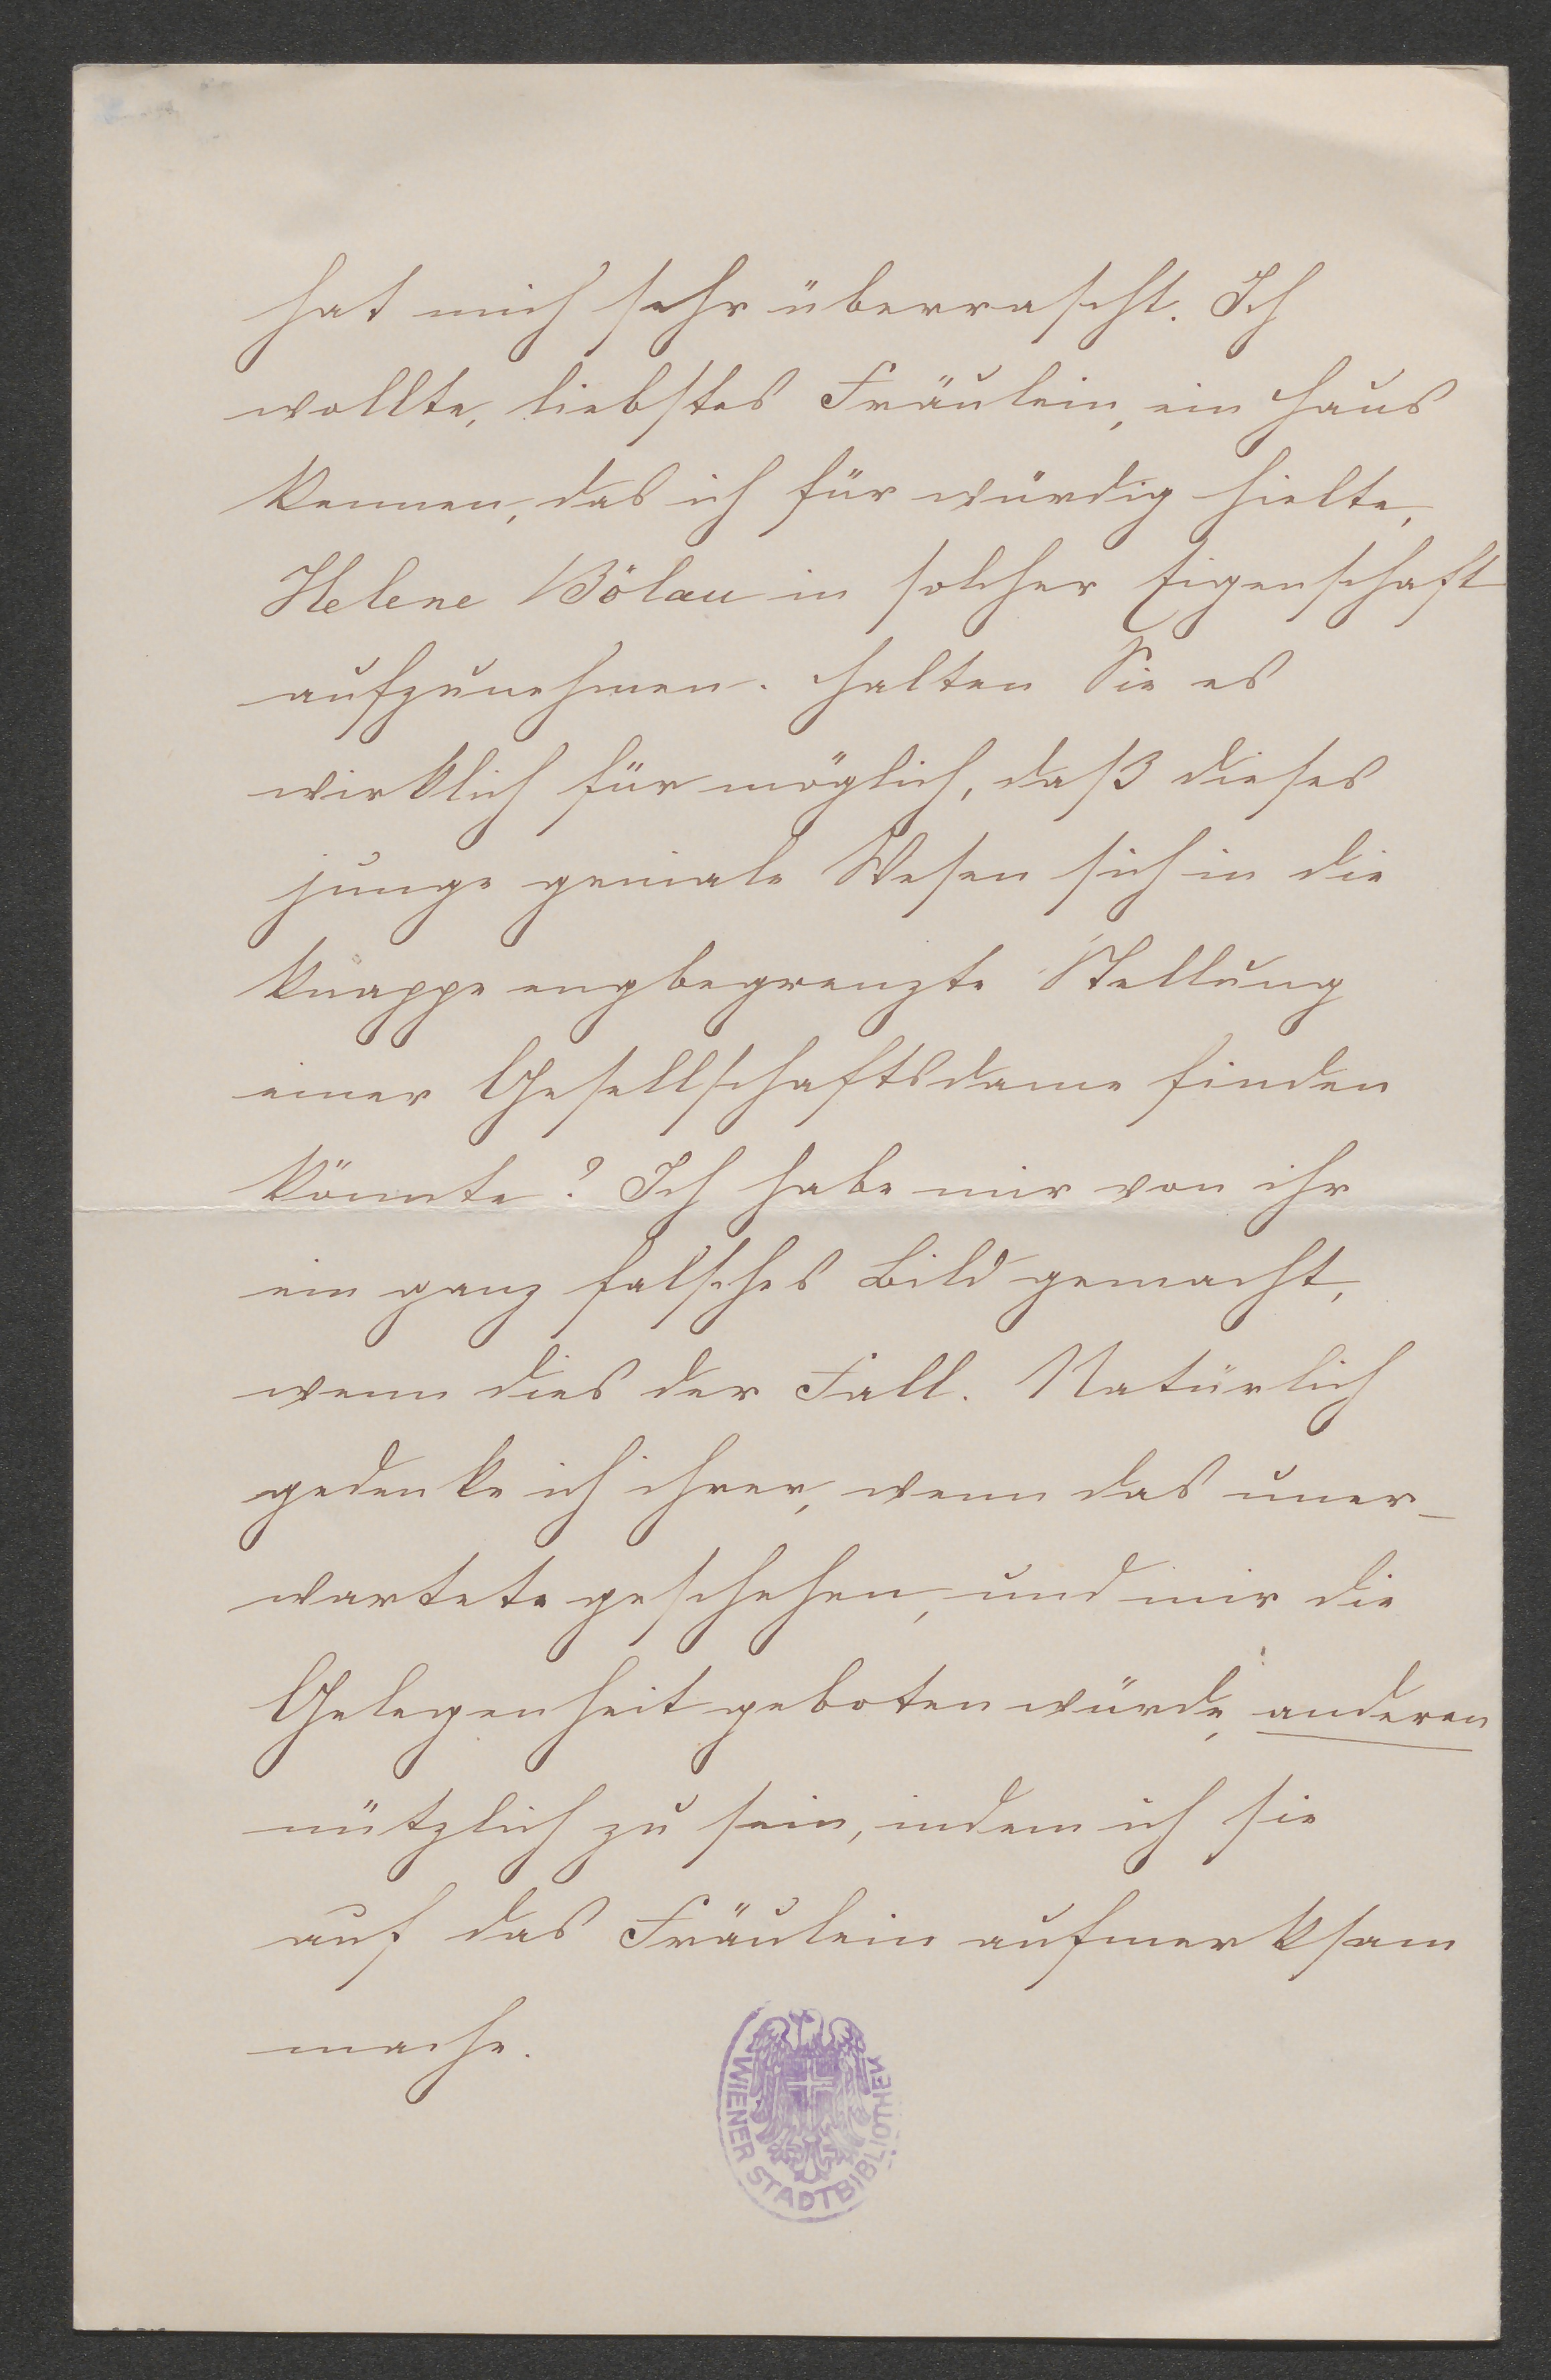 hat mich sehr überrascht. Ich
wollte, liebstes Fräulein, ein Haus
kennen, das ich für würdig hielte,
Helene Bölau in solcher Eigenschaft
aufzunehmen. Halten Sie es
wirklich für möglich, daß dieses
junge geniale Wesen sich in die
knappe engbegrenzte Stellung
einer Gesellschaftsdame finden
könnte? Ich habe mir von ihr
ein ganz falsches Bild gemacht,
wenn dies der Fall. Natürlich
gedenke ich ihrer, wenn das uner-
wartete geschehen, und mir die
Gelegenheit geboten würde, anderen
nützlich zu sein, indem ich sie
auf das Fräulein aufmerksam
mache.
WIENER STADTBIBLIOTHEK